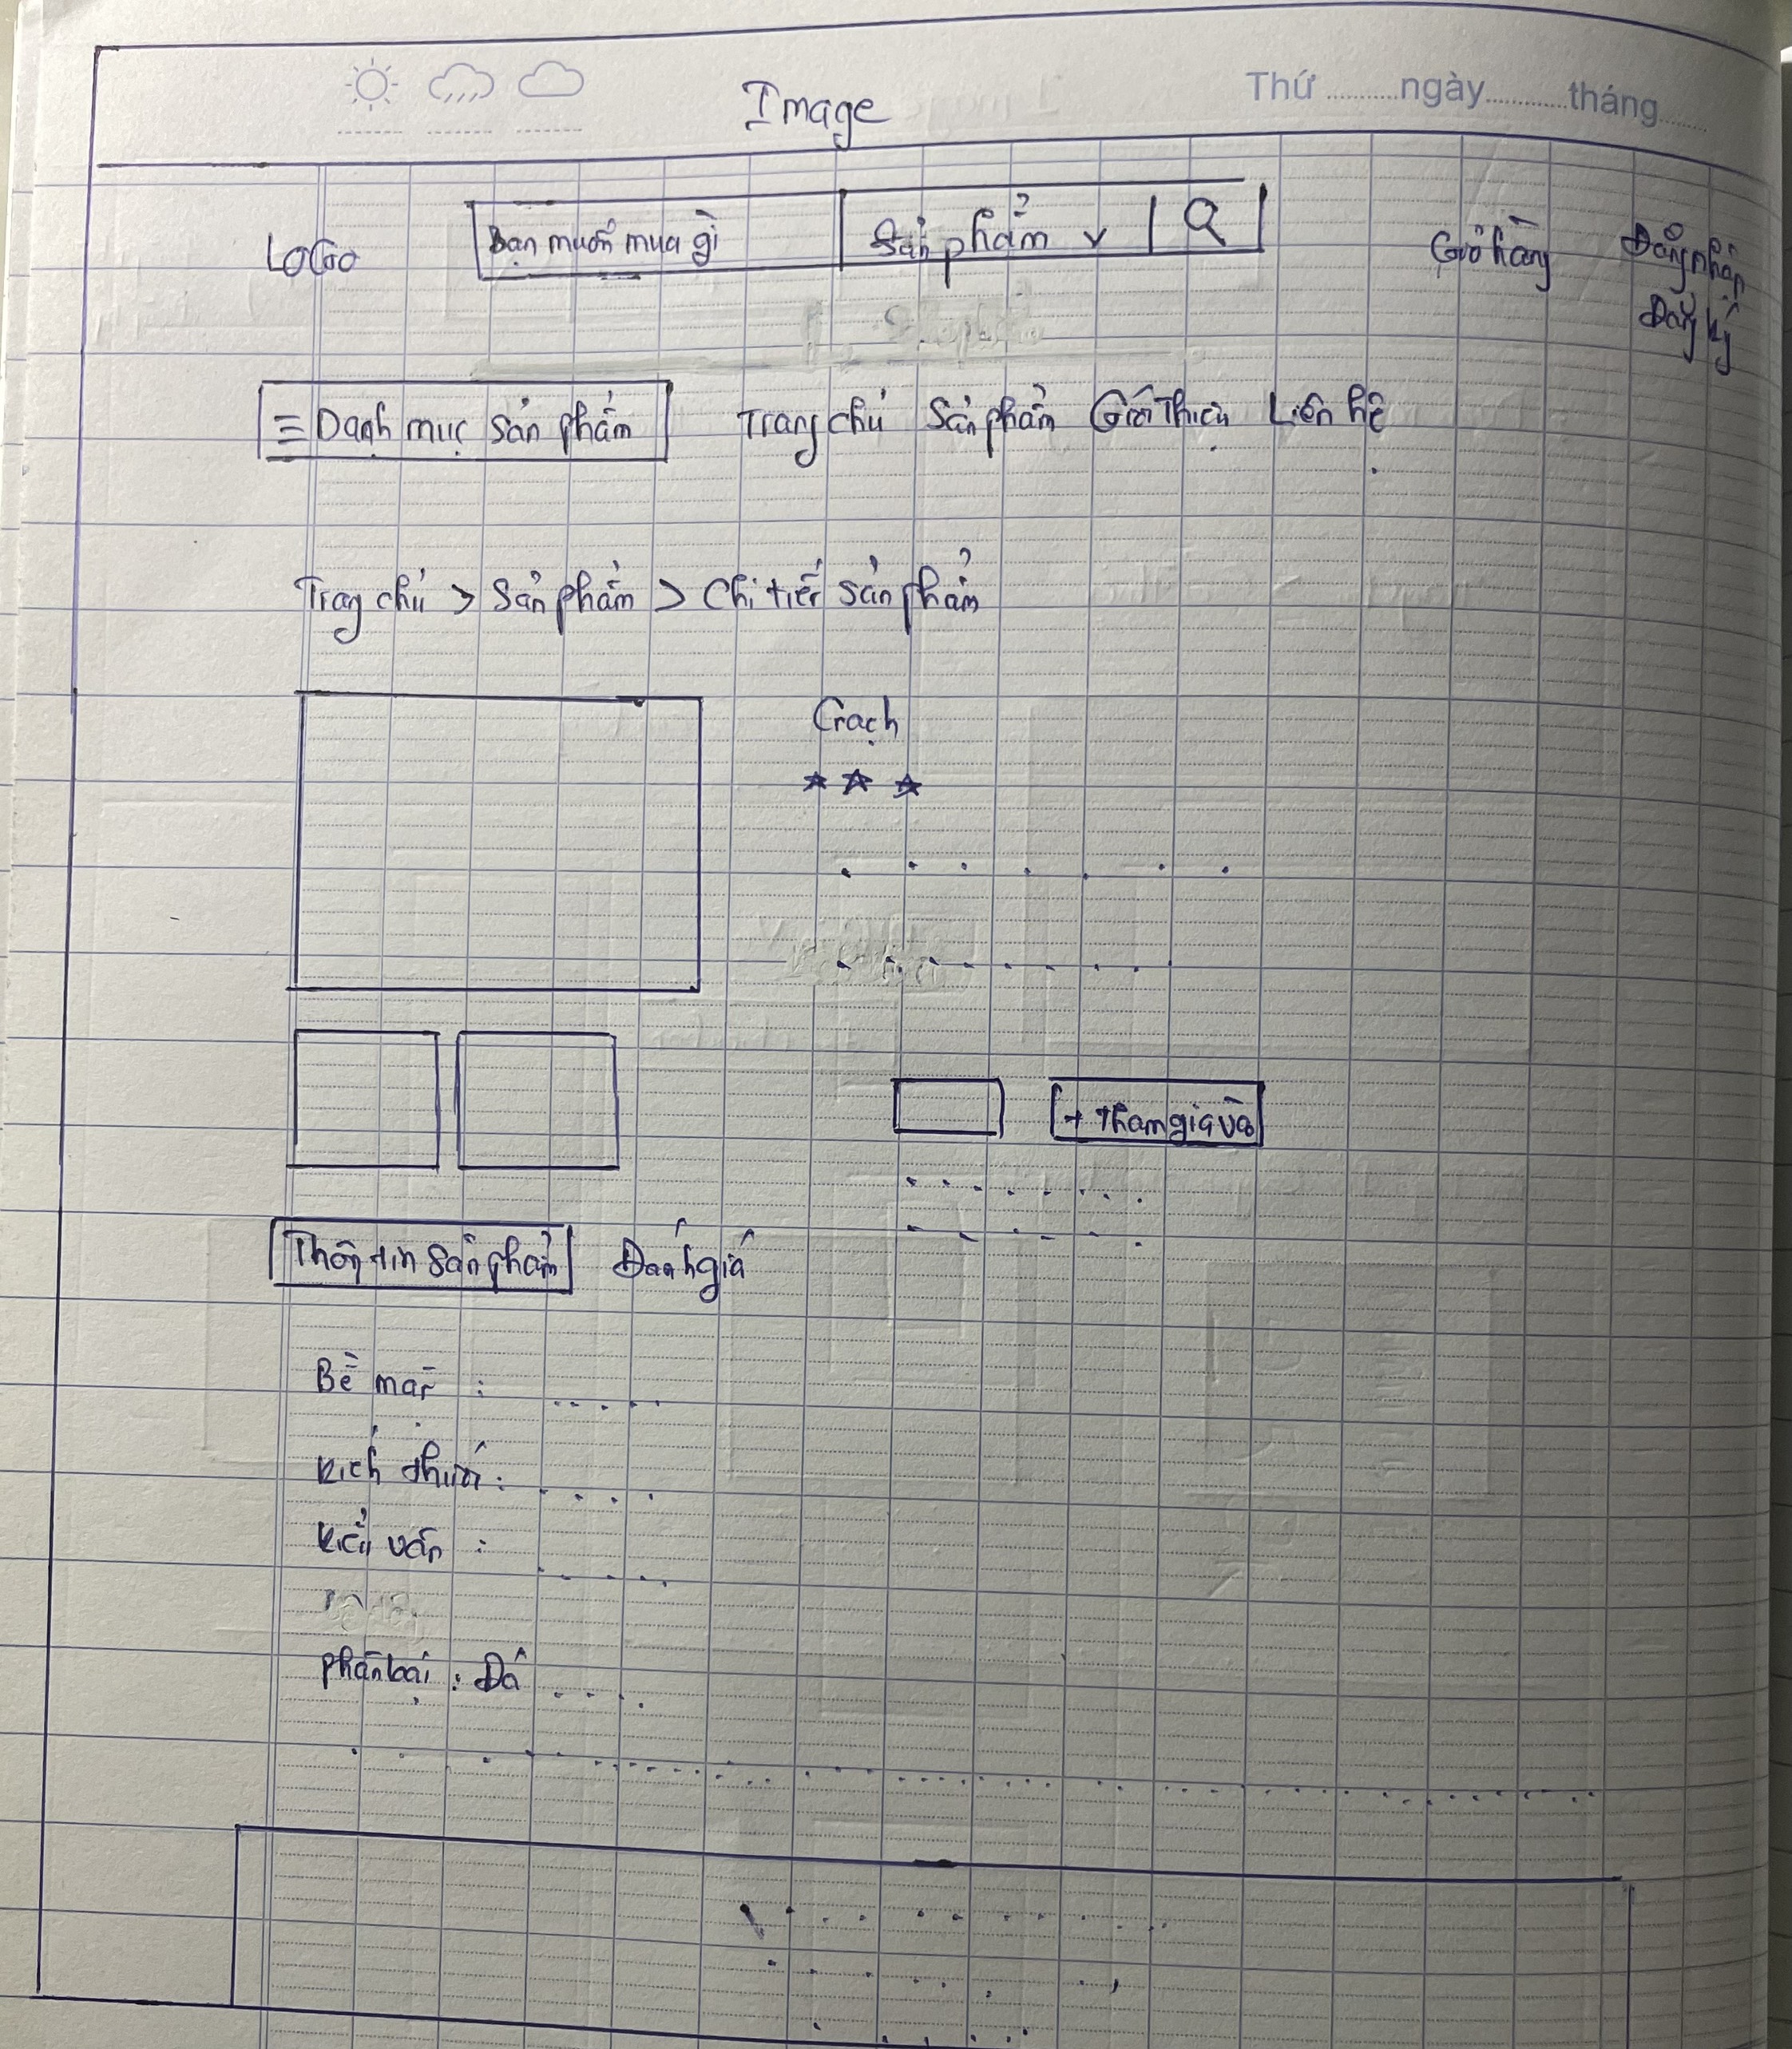 Thứ..........ngày...........tháng.......
Image
LOGO Bạn muốn mua gì Sản phẩm v Giỏ hàng Đăng nhập
Đăng ký
≡ Danh mục sản phẩm Trang chủ Sản phẩm Giới Thiệu Liên hệ
Trang chủ > Sản phẩm > Chi tiết sản phẩm
Gạch
+ Tham gia và
Thôn tin sản phẩm Đánh giá
Bề mặt : .....
Kích thước : ....
Kiểu vân : .....
phân loại : Đá ....